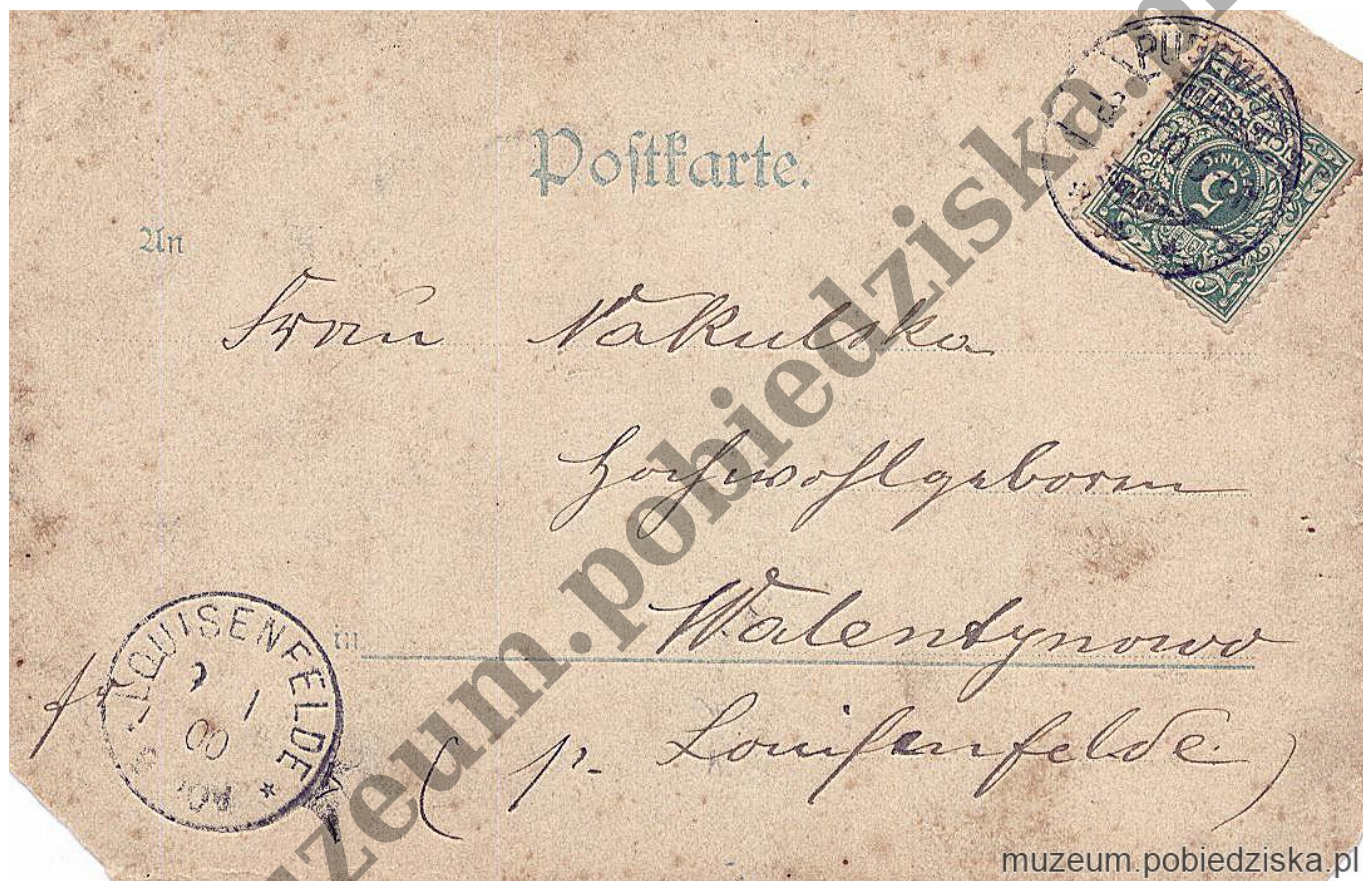 Postkarte.
An
Frau Nakulska
Hochwohlgeboren
in Walentynowo
(p. Louisenfelde.)
LOUISENFELDE
1
00
REICHSPOST
5
muzeum.pobiedziska.pl
muzeum.pobiedziska.pl